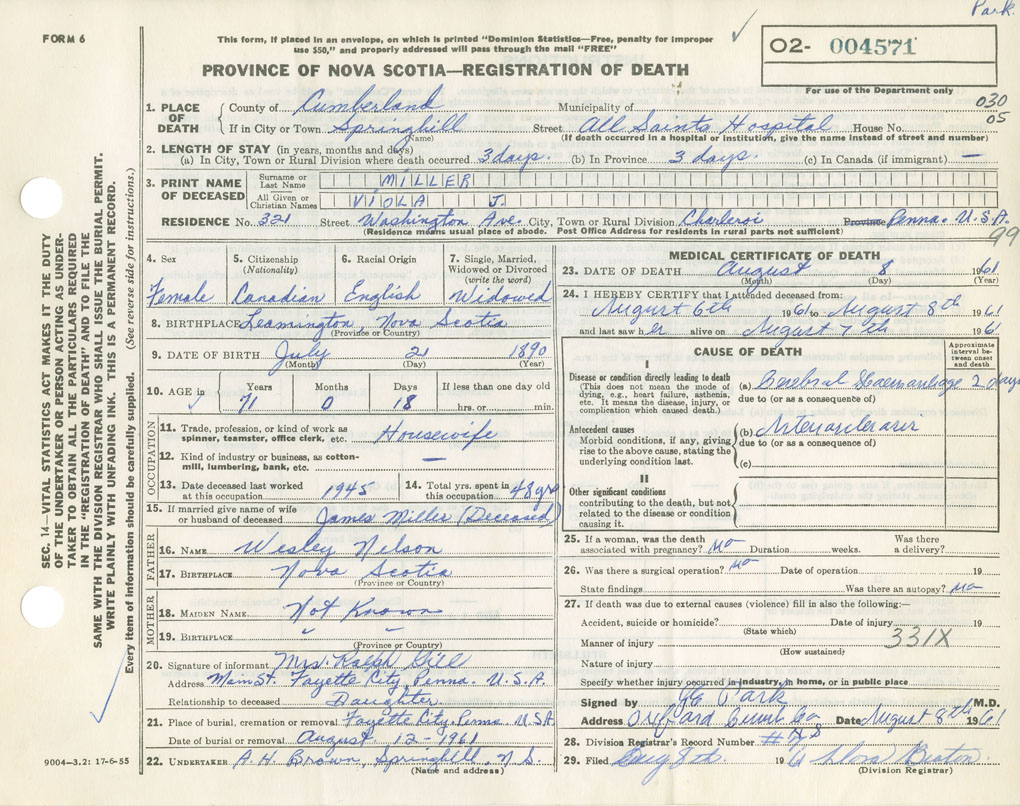 Park.
FORM 6
This form, if placed in an envelope, on which is printed "Dominion Statistics—Free, penalty for improper
use $50," and properly addressed will pass through the mail "FREE"
PROVINCE OF NOVA SCOTIA—REGISTRATION OF DEATH
O2- 004571
For use of the Department only
030
05
1. PLACE OF DEATH County of Cumberland Municipality of
If in City or Town Springhill Street All Saints Hospital House No.
(Name) (If death occurred in a hospital or institution, give the name instead of street and number)
2. LENGTH OF STAY (in years, months and days)
(a) In City, Town or Rural Division where death occurred 3 days. (b) In Province 3 days. (c) In Canada (if immigrant) —
3. PRINT NAME OF DECEASED Surname or Last Name MILLER
All Given or Christian Names VIOLA J.
RESIDENCE No. 321 Street Washington Ave. City, Town or Rural Division Charleroi Province Penna. U.S.A.
(Residence means usual place of abode. Post Office Address for residents in rural parts not sufficient)
99
4. Sex Female
5. Citizenship (Nationality) Canadian
6. Racial Origin English
7. Single, Married, Widowed or Divorced (write the word) Widowed
8. BIRTHPLACE Leamington, Nova Scotia
(Province or Country)
9. DATE OF BIRTH July 21 1890
(Month) (Day) (Year)
10. AGE in Years 71 Months 0 Days 18 If less than one day old hrs. or min.
OCCUPATION
11. Trade, profession, or kind of work as spinner, teamster, office clerk, etc. Housewife
12. Kind of industry or business, as cotton-mill, lumbering, bank, etc. —
13. Date deceased last worked at this occupation 1945
14. Total yrs. spent in this occupation 48 yrs
15. If married give name of wife or husband of deceased James Miller (Deceased)
FATHER
16. NAME Wesley Nelson
17. BIRTHPLACE Nova Scotia
(Province or Country)
MOTHER
18. MAIDEN NAME Not Known
19. BIRTHPLACE
(Province or Country)
20. Signature of informant Mrs. Ralph Gill
Address Main St. Fayette City, Penna. U.S.A.
Relationship to deceased Daughter
21. Place of burial, cremation or removal Fayette City, Penna. U.S.A
Date of burial or removal August 12-1961
22. UNDERTAKER A. H. Brown, Springhill, N.S.
(Name and address)
MEDICAL CERTIFICATE OF DEATH
23. DATE OF DEATH August 8 1961
(Month) (Day) (Year)
24. I HEREBY CERTIFY that I attended deceased from:
August 6th 1961 to August 8th 1961
and last saw her alive on August 7th 1961
CAUSE OF DEATH
Approximate interval between onset and death
I
Disease or condition directly leading to death
(This does not mean the mode of dying, e.g., heart failure, asthenia, etc. It means the disease, injury, or complication which caused death.)
(a) Cerebral Haemorrhage 2 days
due to (or as a consequence of)
Antecedent causes
Morbid conditions, if any, giving rise to the above cause, stating the underlying condition last.
(b)
due to (or as a consequence of)
(c)
II
Other significant conditions
contributing to the death, but not related to the disease or condition causing it.
25. If a woman, was the death associated with pregnancy? no Duration weeks. Was there a delivery?
26. Was there a surgical operation? no Date of operation 19
State findings Was there an autopsy? no
27. If death was due to external causes (violence) fill in also the following:—
Accident, suicide or homicide? Date of injury 19
(State which)
331X
Manner of injury
(How sustained)
Nature of injury
Specify whether injury occurred in industry, in home, or in public place
Signed by Park M.D.
Address Oxford Cumb Co Date August 8th 1961
28. Division Registrar's Record Number
29. Filed Aug 8th 1961
(Division Registrar)
SEC. 14—VITAL STATISTICS ACT MAKES IT THE DUTY
OF THE UNDERTAKER OR PERSON ACTING AS UNDER-
TAKER TO OBTAIN ALL THE PARTICULARS REQUIRED
IN THE "REGISTRATION OF DEATH" AND TO FILE THE
SAME WITH THE DIVISION REGISTRAR WHO SHALL ISSUE THE BURIAL PERMIT.
WRITE PLAINLY WITH UNFADING INK. THIS IS A PERMANENT RECORD.
Every item of information should be carefully supplied. (See reverse side for instructions.)
9004—3.2: 17-6-55